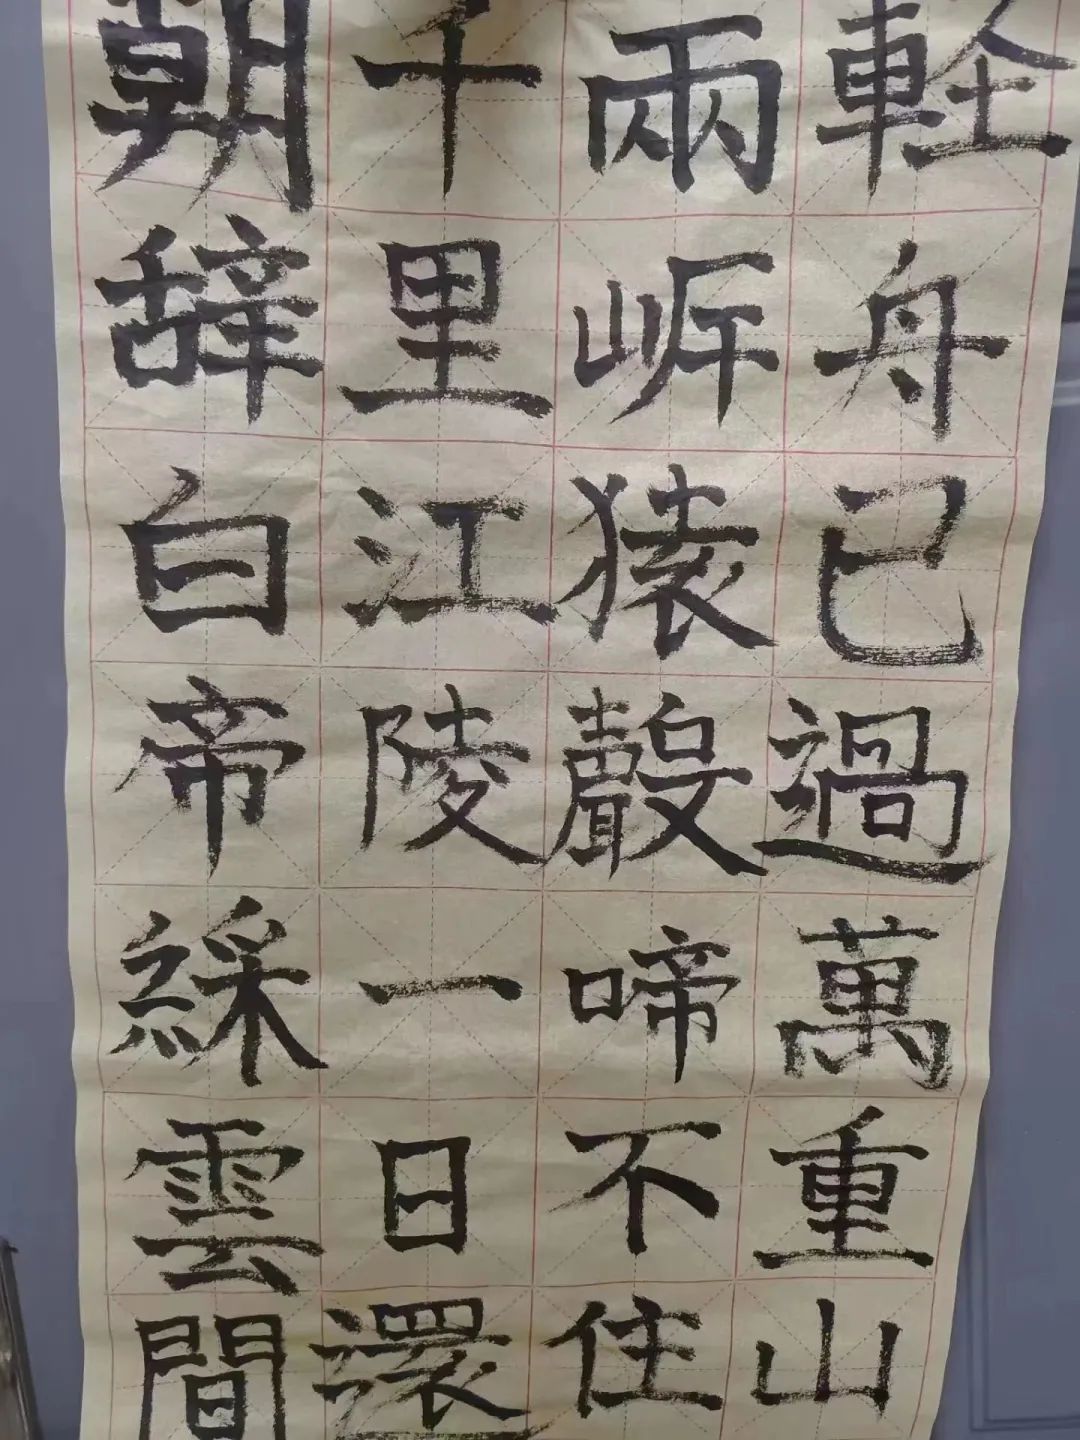 朝辞白帝綵雲間
千里江陵一日還
兩岸猿聲啼不住
軽舟已過萬重山